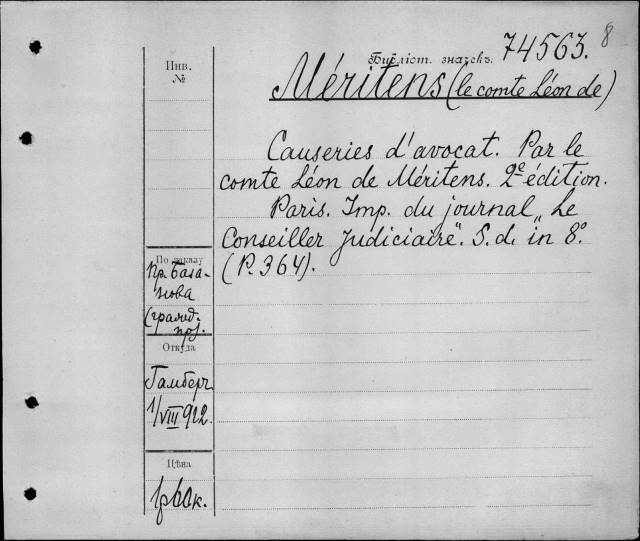 8
Библіот. значекъ. 74563.
Méritens (le comte Léon de)
Causeries d'avocat. Par le
comte Léon de Méritens. 2e édition.
Paris. Imp. du journal „Le
Conseiller Judiciaire“. S. d. in 8°.
(P. 364).
Инв.
№
По заказу
Пр. База-
нова
Откуда
Гамберъ
1/VIII 912.
Цѣна
1р60к.